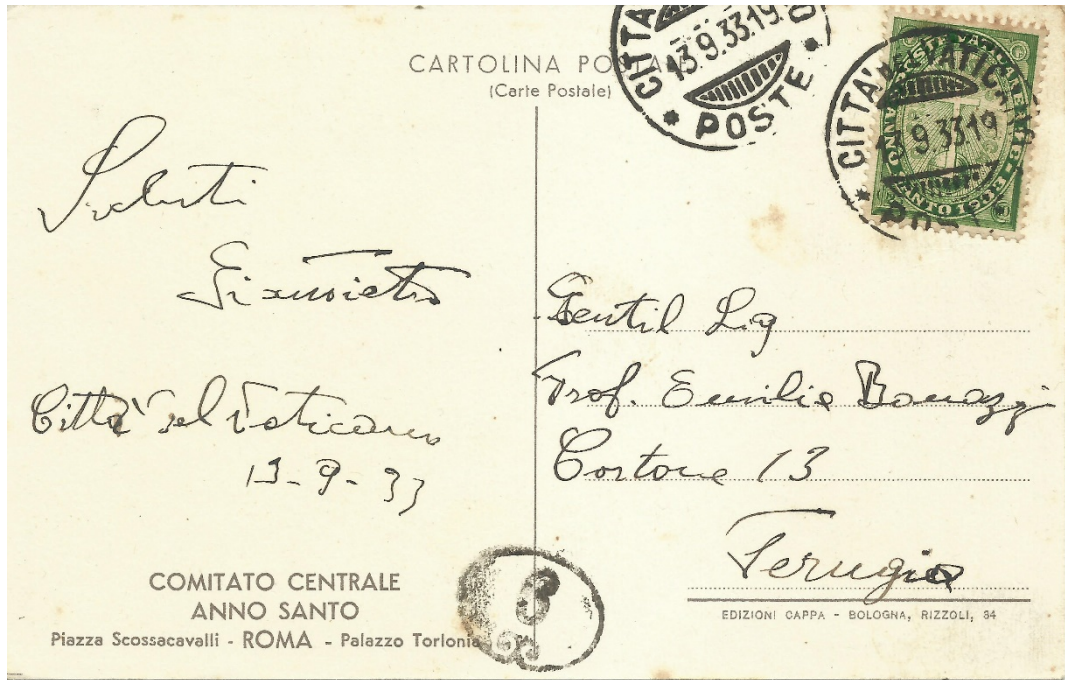 CARTOLINA POSTALE
(Carte Postale)
CITTÀ
13.9.33.19
POSTE
CITTA' DEL VATICANO
13.9.33.19
POSTE
POSTE VATICANE
ANNO
1933
Saluti
Città del Vaticano
13-9-33
Gentil Sig
Prof. Emilia Bonazzi
Cortone 13
Perugia
COMITATO CENTRALE
ANNO SANTO
Piazza Scossacavalli - ROMA - Palazzo Torlonia
6
EDIZIONI CAPPA - BOLOGNA, RIZZOLI, 34